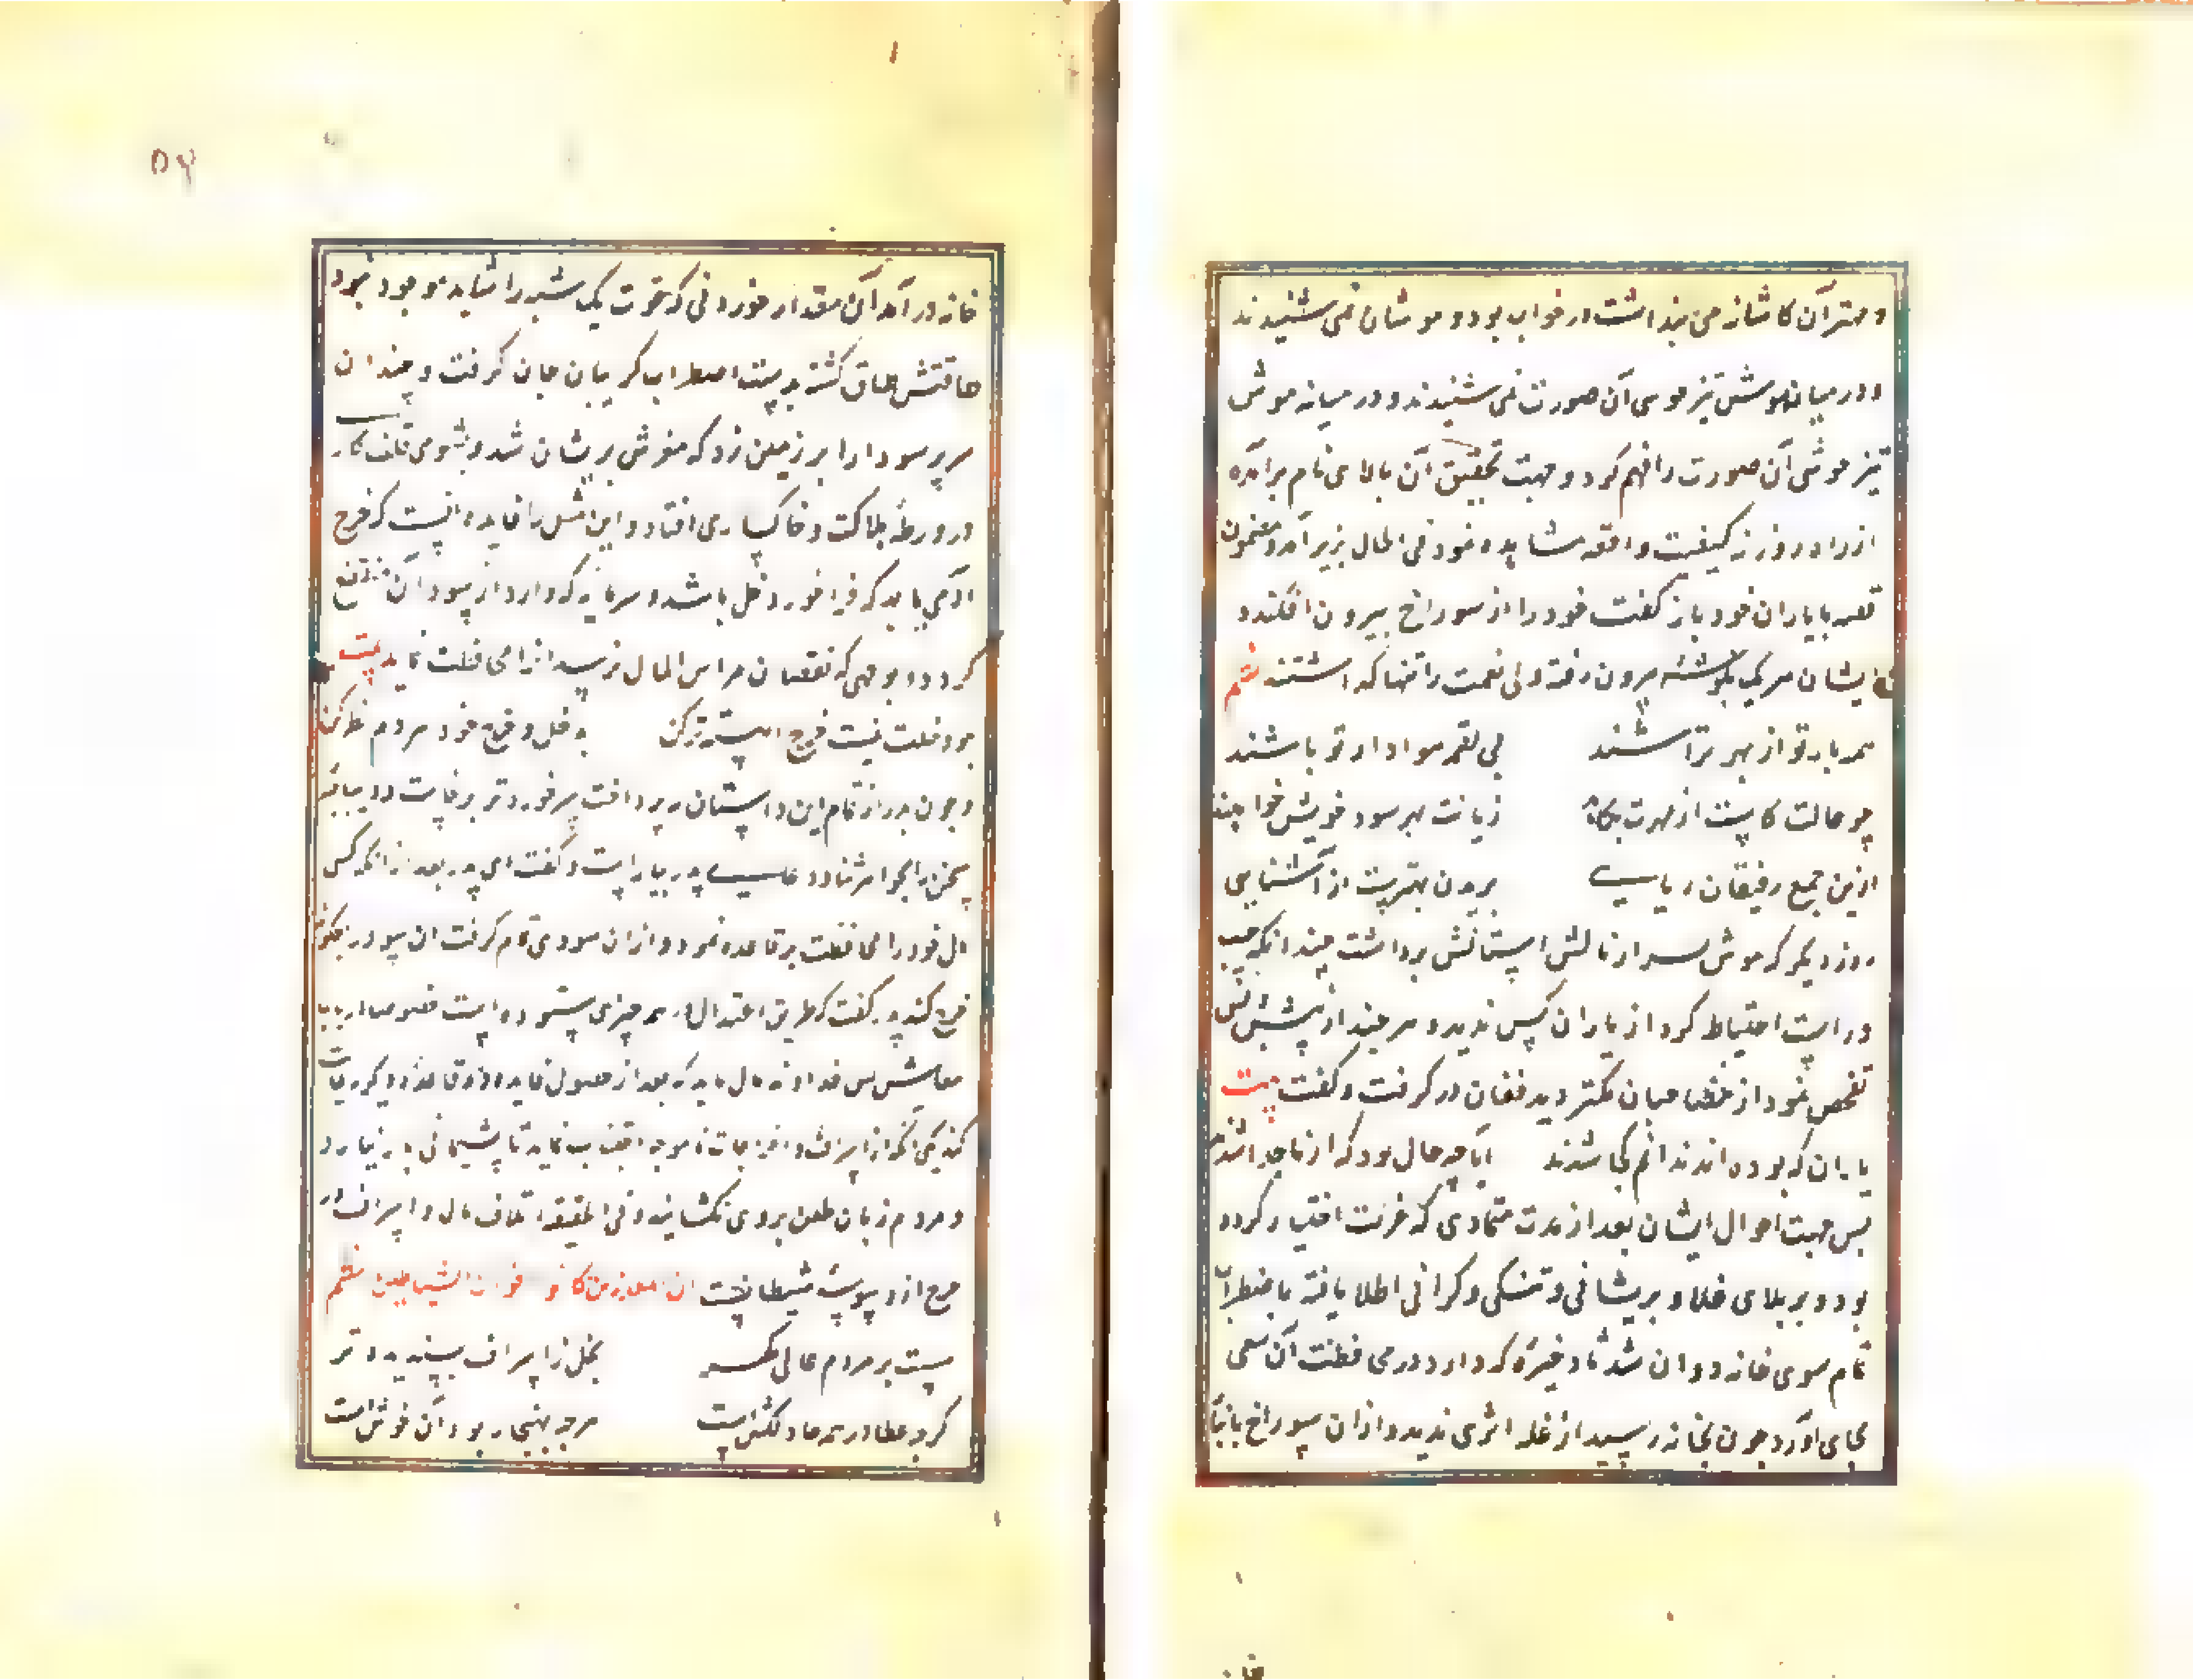 و مهتر آن کاشانه می پنداشت در خواب بود و موشان نمی شنیدند
و در میانه موش تیز هوشی آن صورت را فهم کرد و جهت تحقیق آن بالای بام برآمده
از راه روزنه کیفیت واقعه مشاهده نمود فی الحال بزیر آمد و مضمون
قصه با یاران خود باز گفت خود را از سوراخ بیرون افکند و
ایشان هر یک بگوشه بیرون رفته ولی نعمت را تنها گذاشتند نظم
همه یار تو از بهر تراشند پی لقمه هوادار تو باشند
چو مالت کاهد از مهرت بکاهند زیانت بهر سود خویش خواهند
ازین جمع رفیقان ریایی بریدن بهترست از آشنایی
روز دیگر که موش سر از بالش استانش برداشت چندانکه چپ
و راست احتیاط کرد از یاران کس ندید و هر چند از پیش و پس
تفحص نمود از مصاحبان کمتر دید فغان در گرفت و گفت بیت
یاران که بوده اند ندانم کجا شدند آیا چه حال بود که از ما جدا شدند
پس جهت احوال ایشان بعد از مدت متمادی که عزلت اختیار کرده
بود و بر بلای غلا و پریشانی و تنگی و گرانی اطلاع یافته باضطراب
تمام سوی خانه دوان شد تا ذخیره که دارد در محافظت آن سعی
بجای آورد چون بخانه رسید از غله اثری ندید و از آن سوراخ بانبار
خانه
۵۴
خانه در آمد آن مقدار خوردنی که قوت یک شبه را شاید موجود نبود
طاقتش طاق گشته بدست اضطراب گریبان جان گرفت و چندان
سر پر سودا را بر زمین زد که مغزش پریشان شد و بشومی تلف کاری
در ورطه هلاکت و خاکساری افتاد و این مثل را فایده آنست که خرج
آدمی باید که فراخور دخل باشد و سرمایه که دارد از سود آن منتفع
گردد و بوجهی که نقصان براس المال نرسد آنرا محافظت نماید بیت
چو دخلت نیست خرج آهسته تر کن به دخل و خرج خود هر دم نظر کن
و چون پدر از تمام این داستان بپرداخت پسر خوردتر برخاست و دیباچه
سخن را بجواهر ثنا و دعای پدر بیاراست و گفت ای پدر بعد از آنکه کسی
مال خود را محافظت بر قاعده نمود و از آن سودی تمام گرفت آن سود را چگونه
خرج کند پدر گفت که طریق اعتدال در همه چیزی ستوده است خصوصا در باب
معاش پس خداوند مال باید که بعد از حصول فایده دو قاعده دیگر رعایت
کند یکی آنکه از اسراف و اخراجات ناموجه اجتناب نماید تا پشیمانی بار نیارد
و مردم زبان طعن بروی نگشایند و فی الحقیقه اتلاف مال و اسراف در
خرج از وسوسه شیطانست ان المبذرین کانوا اخوان الشیاطین نظم
هست بر مردم عالی گهر بخل ز اسراف پسندیده تر
گرچه عطا در همه جا دلکش است هر چه بهنجار بود آن خوش است